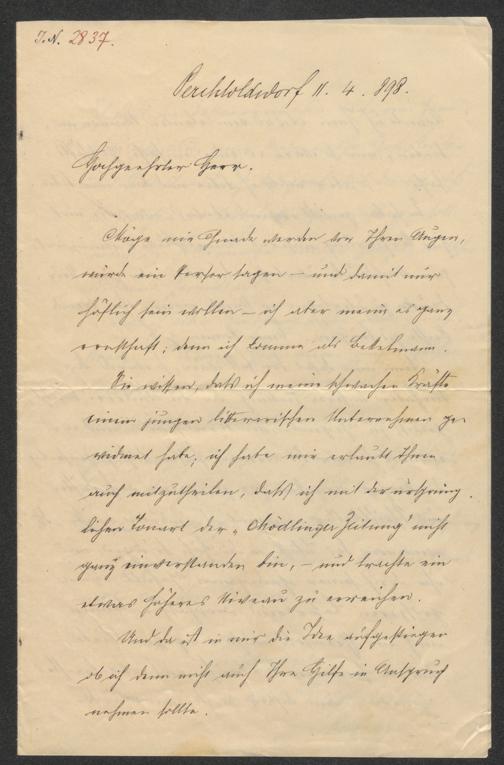 I.N. 2837.
Perchtoldsdorf 11. 4. 898.
Hochgeehrter Herr.
Möge mir Gnade werden vor Ihren Augen,
würde ein Perser sagen – und damit nur
höflich sein wollen – ich aber meine es ganz
ernsthaft; denn ich komme als Bettelmann.
Sie wissen, daß ich meine schwachen Kräfte
einem jungen litterarischen Unternehmen ge-
widmet habe; ich habe mir erlaubt Ihnen
auch mitzutheilen, daß ich mit der ursprüng-
lichen Tonart der „Mödlinger Zeitung" nicht
ganz einverstanden bin, – und trachte ein
etwas höheres Niveau zu erreichen.
Und da ist in mir die Idee aufgestiegen
ob ich denn nicht auch Ihre Hilfe in Anspruch
nehmen sollte.